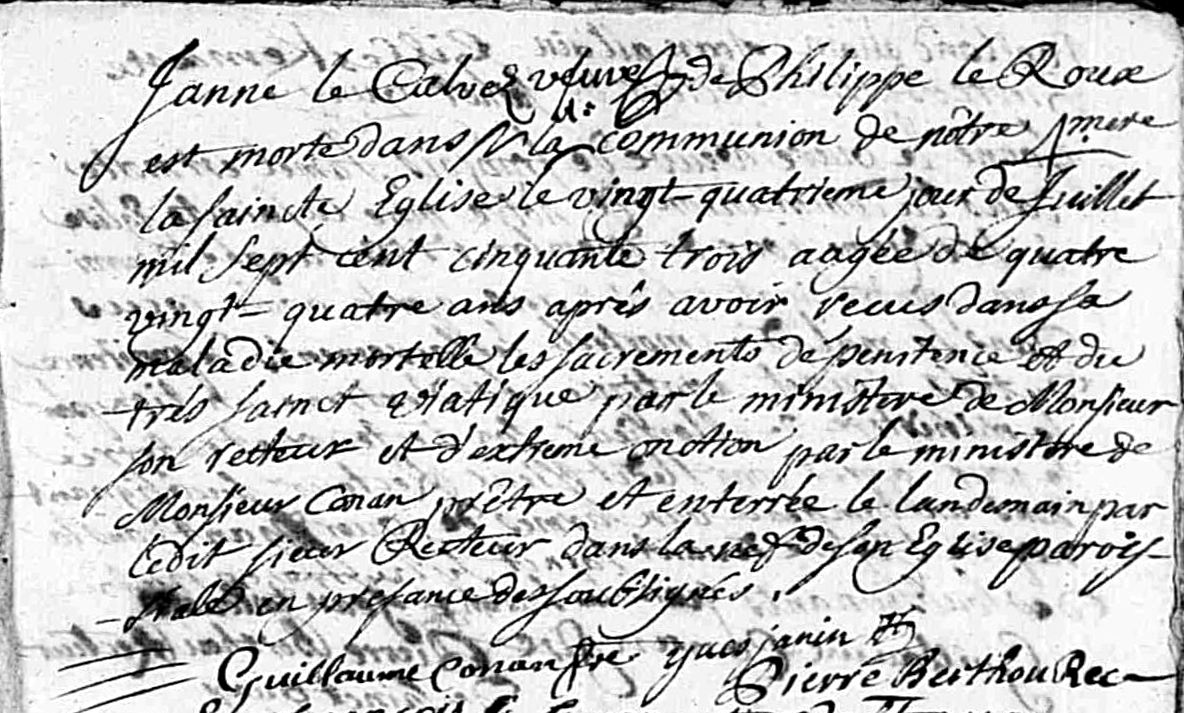 Janne le Calvez veuve de Philippe le Roux
est morte dans la communion de nôtre mere
la saincte Eglise le vingt-quatrieme jour de Juillet
mil sept cent cinquante trois aagée de quatre
vingt-quatre ans aprés avoir recus dans sa
maladie mortelle les sacrements de penitence et du
trés sainct viatique par le ministere de Monsieur
son recteur et d'extreme onction par le ministere de
Monsieur Conan prêtre et enterrée le landemain par
ledit sieur Recteur dans la nef de son Eglise parois-
-siale en presance des soubsignés.
Guillaume Conan ptre yves janin
Pierre Berthou Rec-